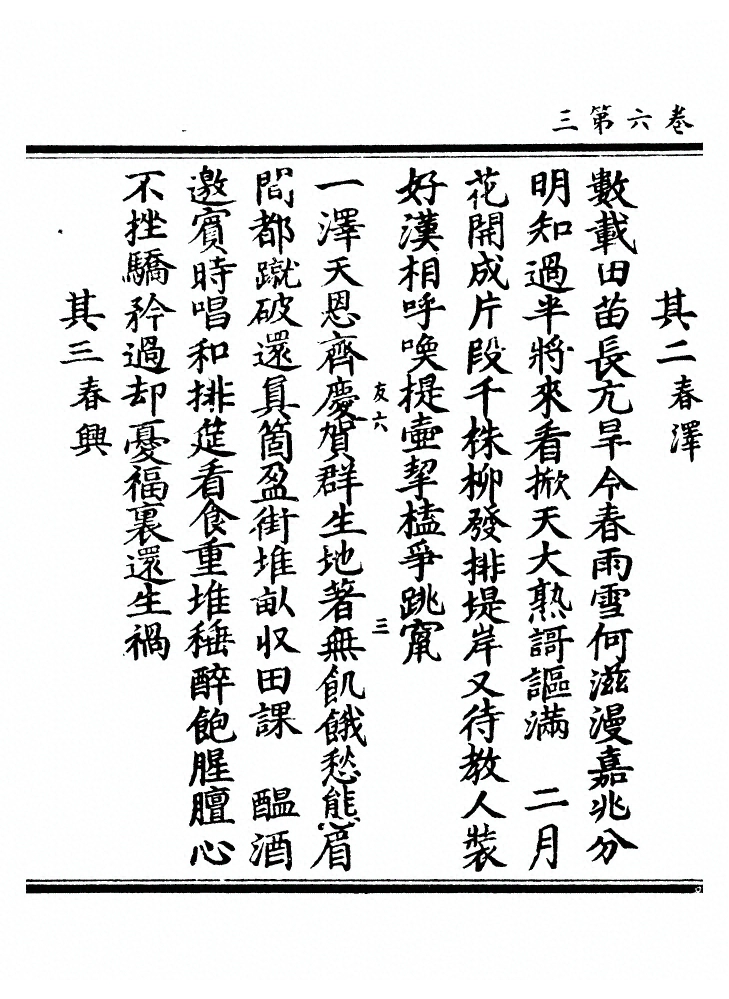 卷六第三
其二春澤
數載田苗長亢旱今春雨雪何滋漫嘉兆分
明知過半將來看掀天大熟謌謳滿　二月
花開成片段千株柳發排堤岸又待教人裝
好漢相呼喚提壷挈榼爭跳竄
友六
三
一澤天恩齊慶賀群生地著無飢餓愁態眉
間都蹴破還員箇盈街堆畝収田課　醖酒
邀賓時唱和排筵看食重堆種醉飽腥膻心
不挫驕矜過却憂福裏還生禍
其三春興